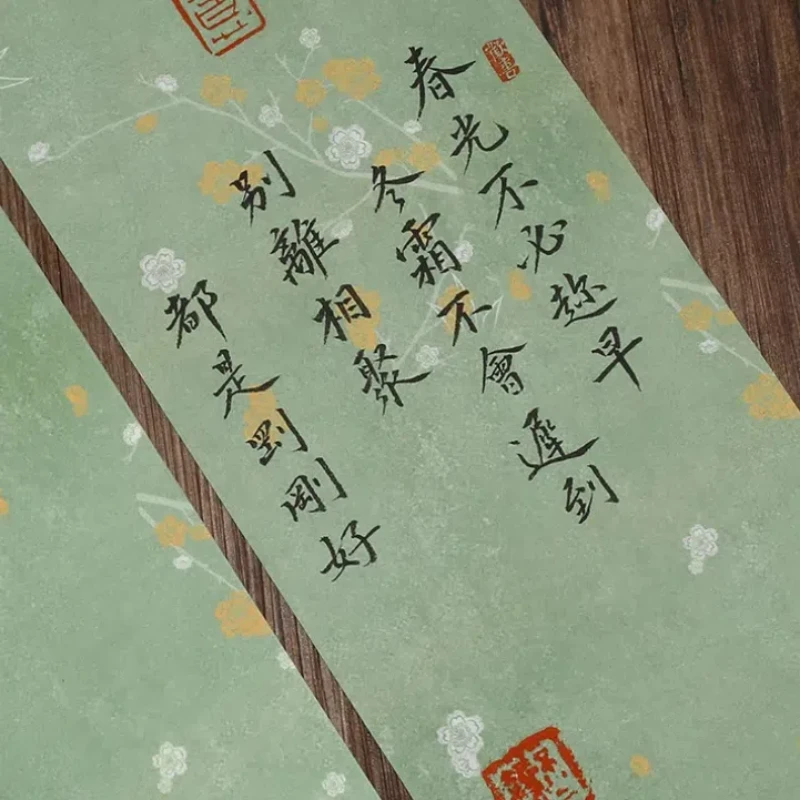 春光不必趁早
冬霜不會遲到
別離相聚
都是剛剛好